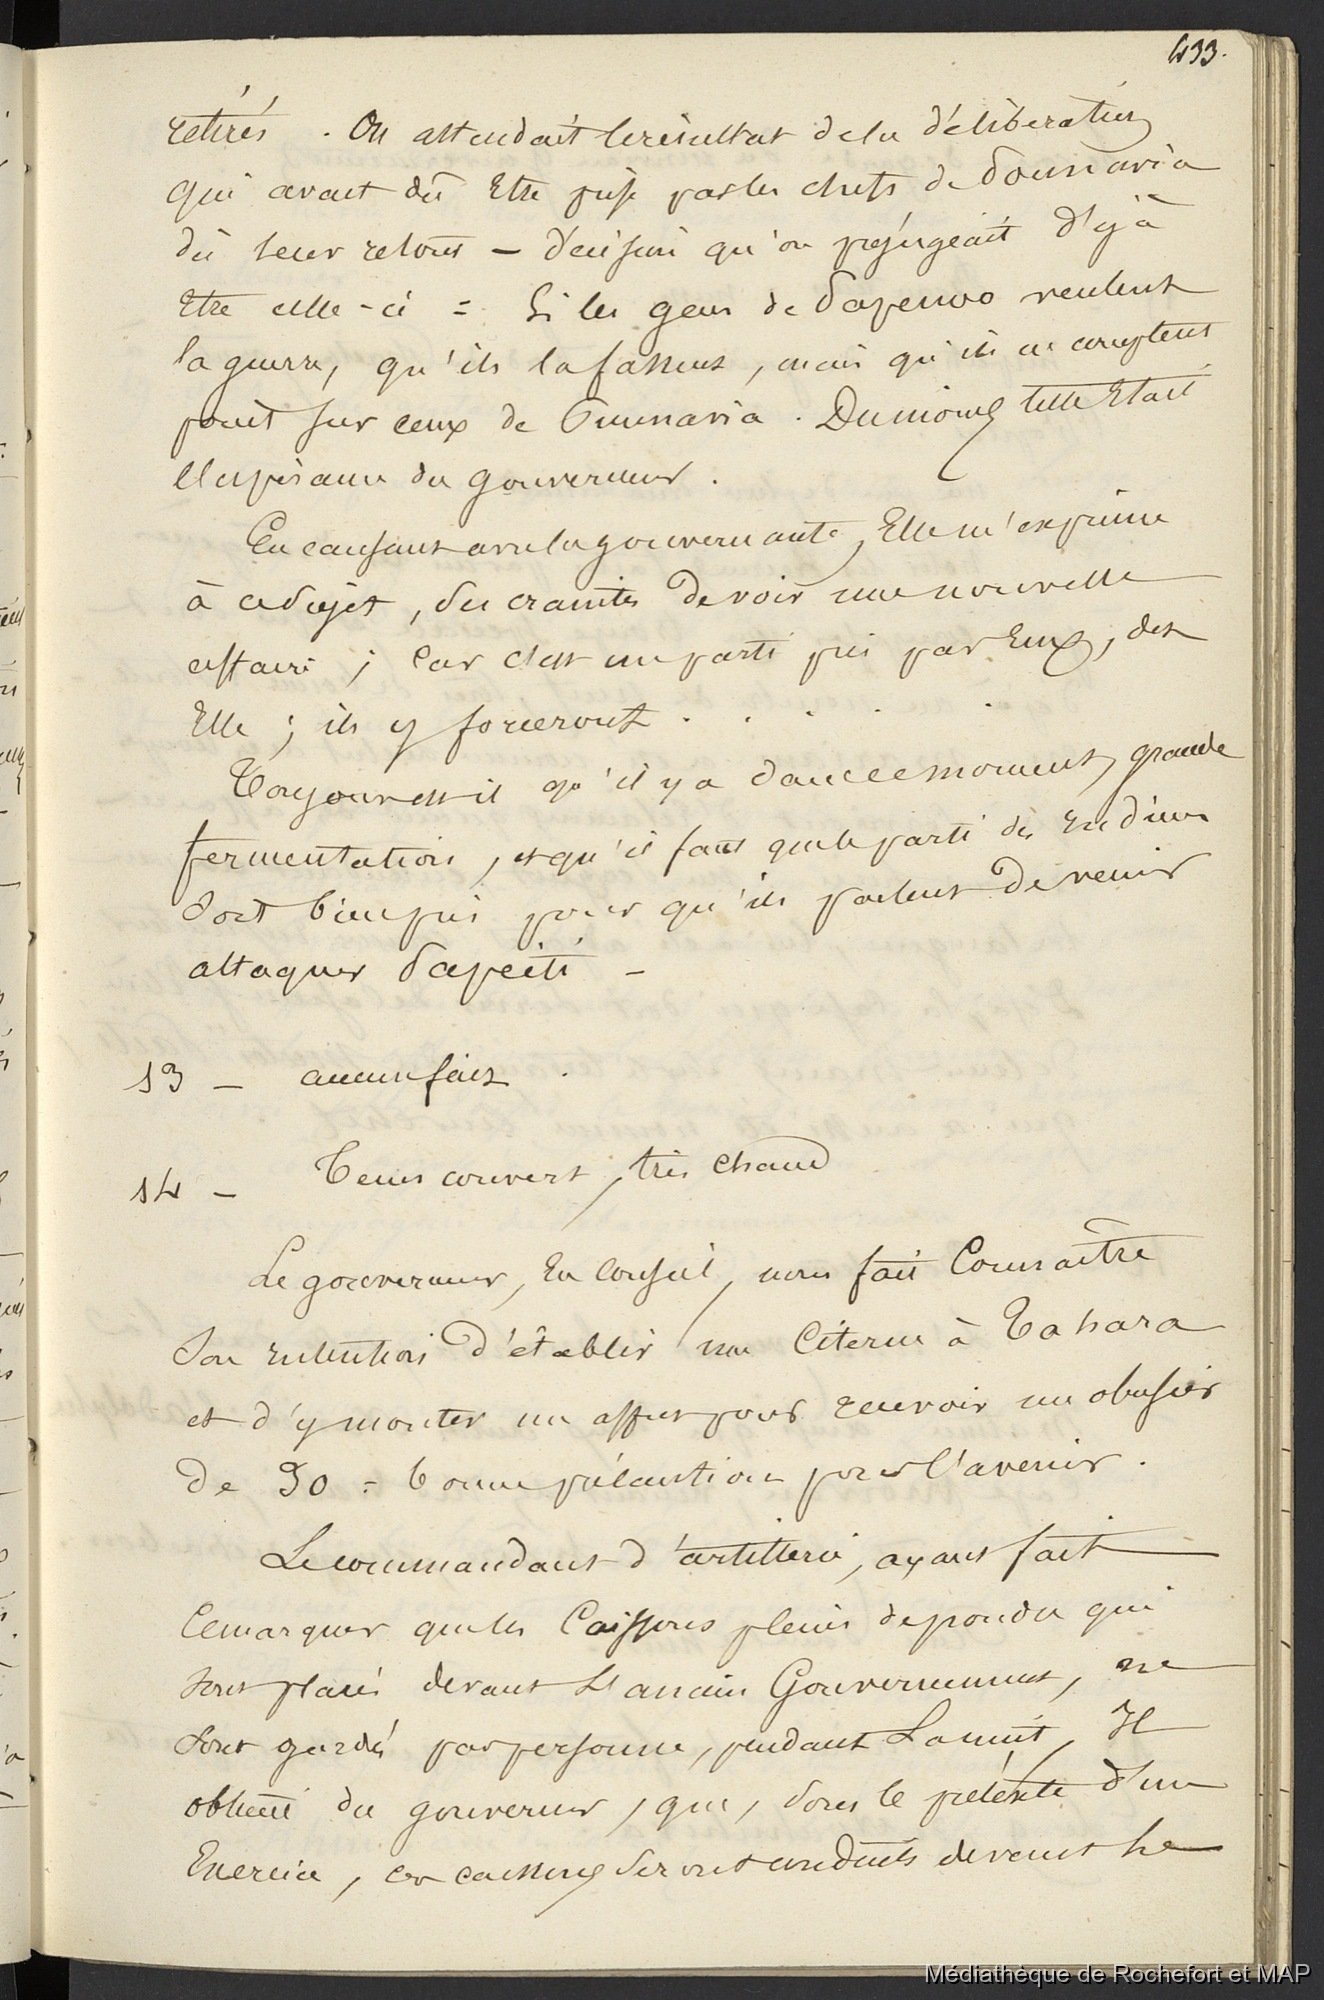 433.
retirés . On attendait le résultat de la délibération
qui avait dû Etre prise par les chefs de Pounavia
dù leur retour – décision qu'on préjugeait d'éjà
Etre celle-ci = Si les gens de Papenoo veulent
la guerre, qu'ils la fassent, mais qu'ils ne comptent
point sur ceux de Pounavia . Du moins telle Etait
l'Espérance du gouverneur .
En causant avec la gouvernante, Elle m'exprime
à ce sujet, des craintes de voir une nouvelle
affaire ; Car c'est un parti pris par Eux, dit
Elle ; ils y forceront . . . . .
Toujours est-il qu'il y a dans ce moment, grande
fermentation, et qu'il faut que le parti des Indiens
soit bien pris pour qu'ils parlent de venir
attaquer Papeïti –
13 – aucun fait .
14 – Tems couvert, très chaud
Le gouverneur, En Conseil, nous fait Connaître
Son intention d'établir une Citerne à Tahara
et d'y monter un affut pour recevoir un obusier
De 30 = bonne précaution pour l'avenir .
Le commandant d'artillerie, ayant fait
remarquer que les Caissons pleins de poudre qui
sont placés devant L'ancien Gouvernement, ne
sont gardés par personne, pendant La nuit, Il
obtient du gouverneur, que, sous le prétexte d'un
Exercice, ces caissons seront conduits devant le
Médiathèque de Rochefort et MAP